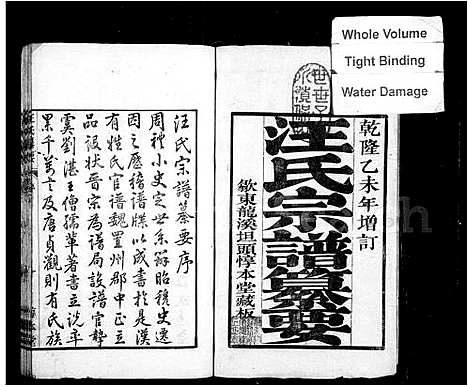 Whole Volume
Tight Binding
Water Damage
乾隆乙未年增訂
汪氏宗譜纂要
歙東龍溪坦頭惇本堂藏板
汪氏宗譜纂要序
周禮小史定世系辯昭穆史遷
因之歷稽譜牒以成書於是漢
有姓氏官譜魏置州郡中正立
品設狀晉宋為譜局設譜官摯
虞劉湛王儉孺輩著書立說辛
累千萬言及唐貞觀則有氏族